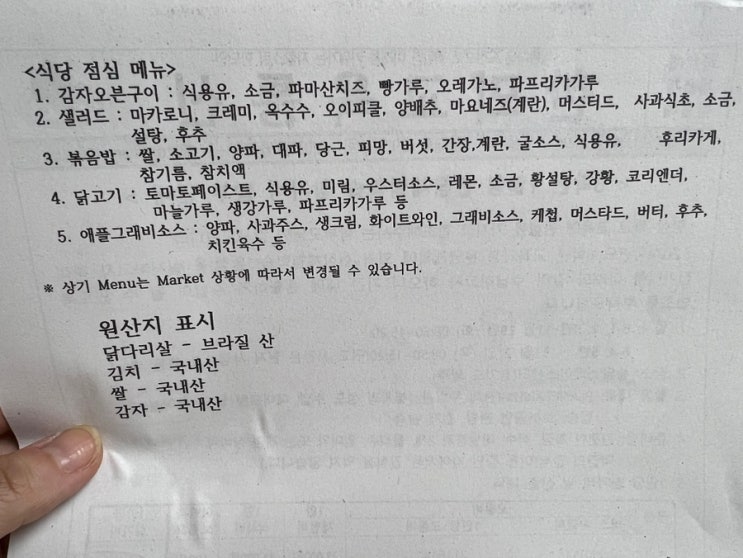 <식당 점심 메뉴>
1. 감자오븐구이 : 식용유, 소금, 파마산치즈, 빵가루, 오레가노, 파프리카가루
2. 샐러드 : 마카로니, 크레미, 옥수수, 오이피클, 양배추, 마요네즈(계란), 머스터드, 사과식초, 소금,
설탕, 후추
3. 볶음밥 : 쌀, 소고기, 양파, 대파, 당근, 피망, 버섯, 간장,계란, 굴소스, 식용유, 후리카게,
참기름, 참치액
4. 닭고기 : 토마토페이스트, 식용유, 미림, 우스터소스, 레몬, 소금, 황설탕, 강황, 코리엔더,
마늘가루, 생강가루, 파프리카가루 등
5. 애플그래비소스 : 양파, 사과주스, 생크림, 화이트와인, 그래비소스, 케첩, 머스타드, 버터, 후추,
치킨육수 등
※ 상기 Menu는 Market 상황에 따라서 변경될 수 있습니다.
원산지 표시
닭다리살 - 브라질 산
김치 - 국내산
쌀 - 국내산
감자 - 국내산